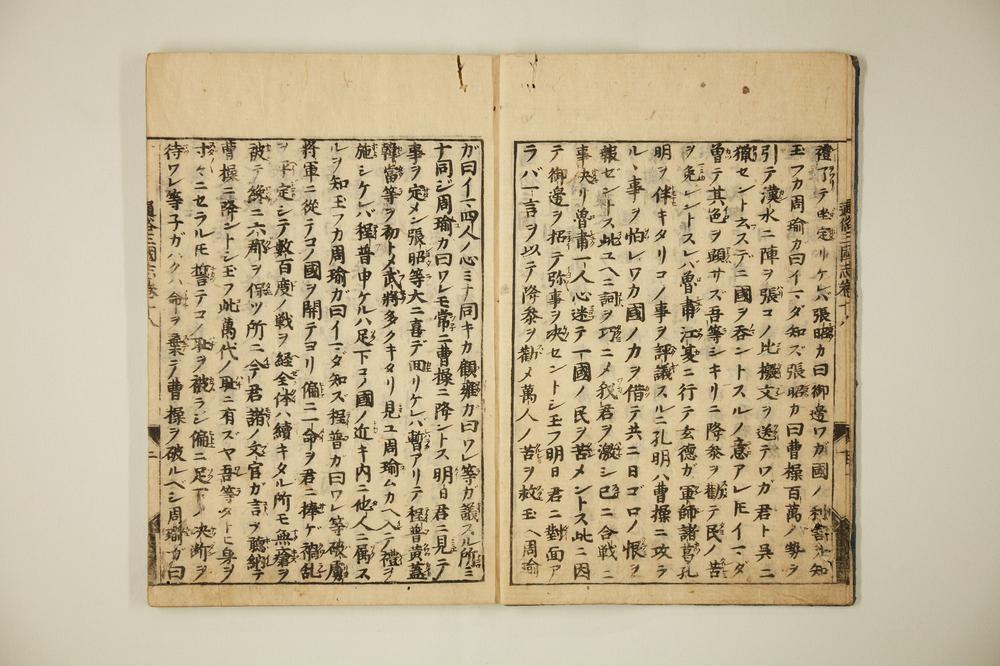 禮了テ坐定リケレハ張昭カ曰御邊ワガ國ノ利害ヲ知
玉フカ周瑜カ曰イマダ知ズ張昭カ曰曹操百萬ノ勢ヲ
引テ漢水ニ陣ヲ張コノ比檄文ヲ送テワガ君ト呉ニ
獵セント云ステニ國ヲ呑ントスルノ意アレ𪜈イマダ
曾テ其色ヲ顕サズ吾等シキリニ降參ヲ勸テ民ノ苦
ヲ免レントスレハ魯肅江夏ニ行テ玄德ガ軍師諸葛孔
明ヲ伴キタリコノ事ヲ評議スルニ孔明ハ曹操ニ攻ラ
ルヽ事ヲ怕レワカ國ノ力ヲ借テ共ニ日ゴロノ恨ヲ
報セントス此ユヘニ詞ヲ巧ニメ我君ヲ激シ已ニ合戰ニ
事決リ魯肅一人心迷テ一國ノ民ヲ苦メントス此ニ因
テ御邊ヲ招テ弥事ヲ決セントシ玉フ明日君ニ對面ア
ラバ一言ヲ以テ降參ヲ勸メ萬人ノ苦ヲ救玉ヘ周瑜
通俗三國志卷十八
ガ曰イマ四人ノ心ミナ同キカ顧雍ガ曰ワレ等カ議スル所ミ
ナ同ジ周瑜カ曰ワレモ常ニ曹操ニ降ントス明日君ニ見テ
事ヲ定メン張昭等大ニ喜デ回リケレバ暫アリテ程普黄蓋
韓當等ヲ初トメ武將多クキタリ見ユ周瑜ムカヘ入テ禮ヲ
施シケレバ程普申ケルハ足下コノ國ノ近キ内ニ他人ニ属ス
ルヲ知玉フカ周瑜ガ曰イマダ知ズ程普カ曰ワレ等破虜
將軍ニ從テコノ國ヲ開テヨリ偏ニ一命ヲ君ニ捧ゲ禍乱
ヲ平定シテ數百度ノ戰ヲ経全体ハ續キタル所モ無瘡ヲ
被テ終ニ六郡ヲ保ツ所ニ今君諸ノ文官ガ言ヲ聴納テ
曹操ニ降ントシ玉フ此萬代ノ耻ニ有ズヤ吾等タトヒ身ヲ
寸々ニセラルヽ𪜈誓テコノ耻ヲ被ラジ偏ニ足下ノ決断ヲ
待ワレ等子ガハクハ命ヲ棄テ曹操ヲ破ルベシ周瑜カ曰
通俗三國志卷十八